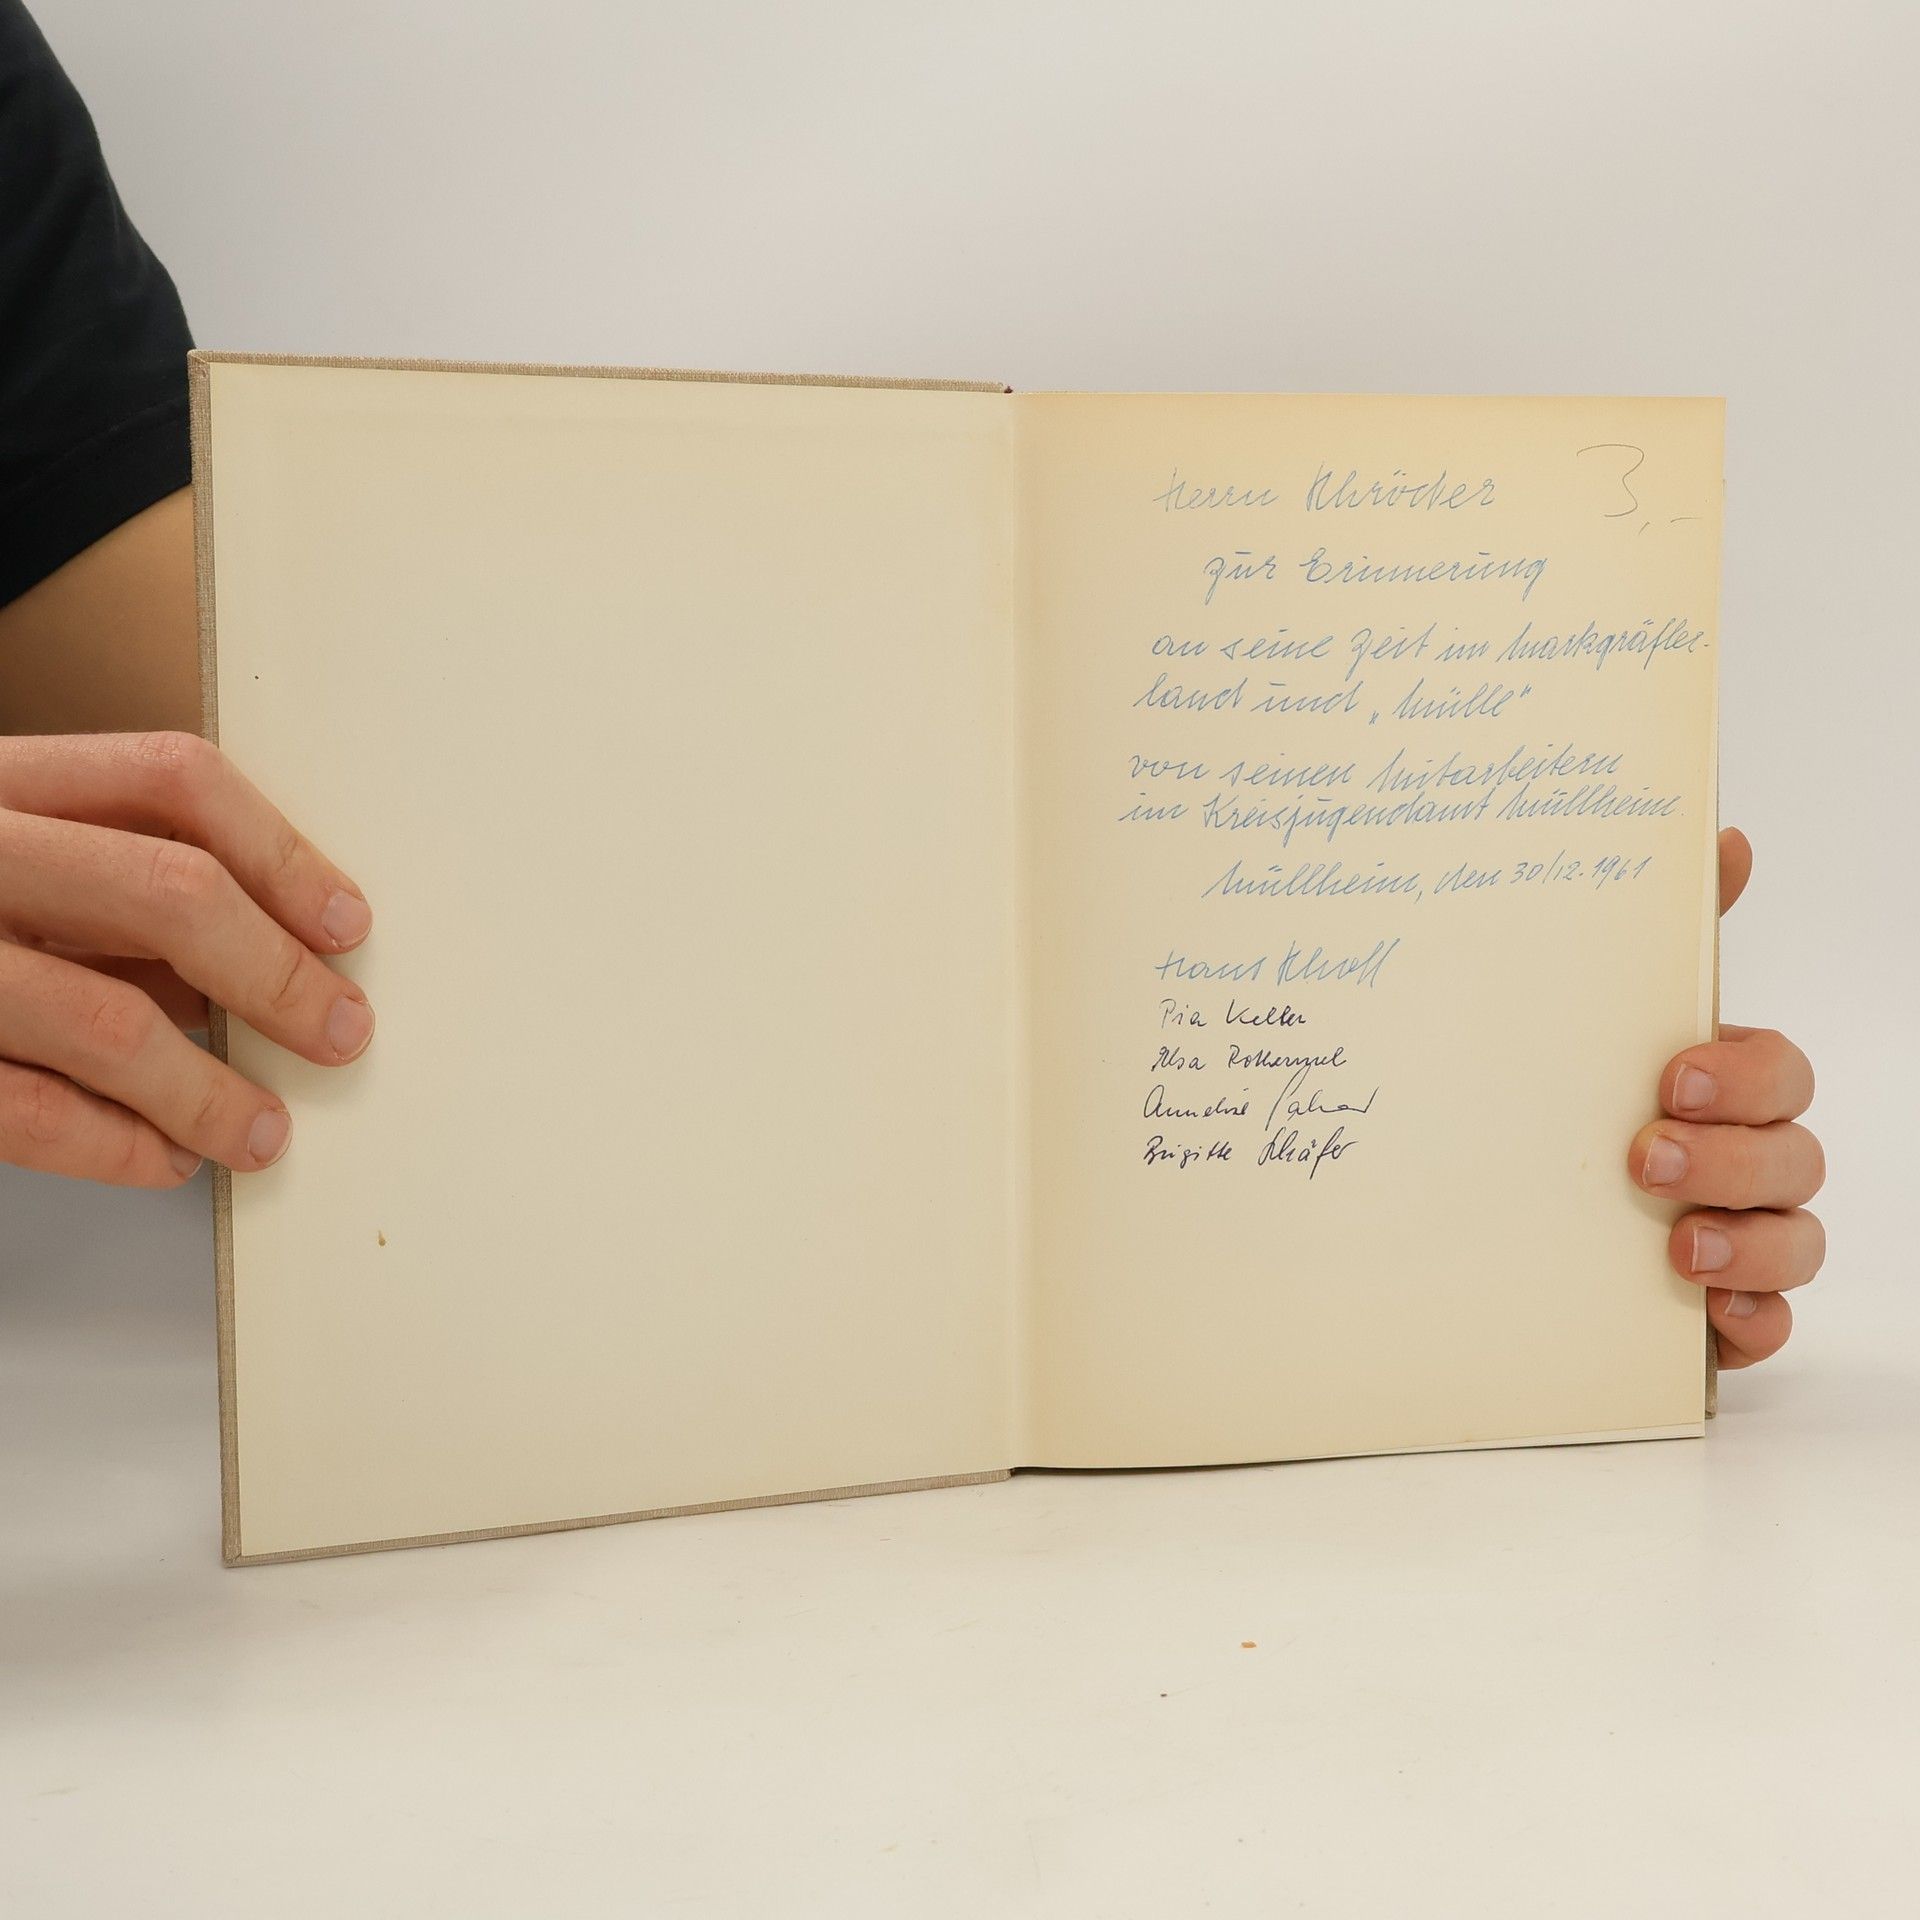 3,-
Herrn Schröder
zur Erinnerung
an seine Zeit im Markgräfler-
land und „Mülle“
von seinen Mitarbeitern
im Kreisjugendamt Müllheim.
Müllheim, den 30/12.1961
Hans
Pia Keller
Elsa
Annelise
Brigitte Schäfer